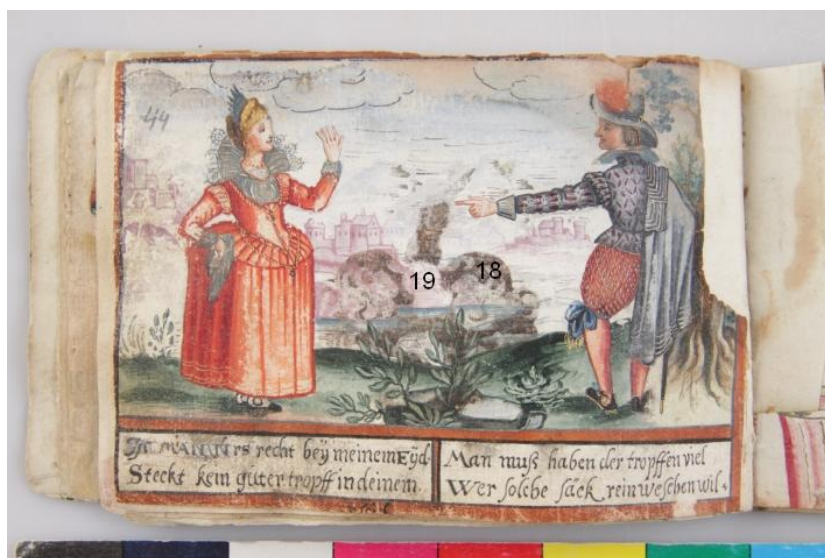 44
19
18
MANN rs recht beÿ meinem Eÿd.
Steckt kein guter tropff in deinem.
Man muß haben der tropffen viel
Wer solche säck rein weschen wil.